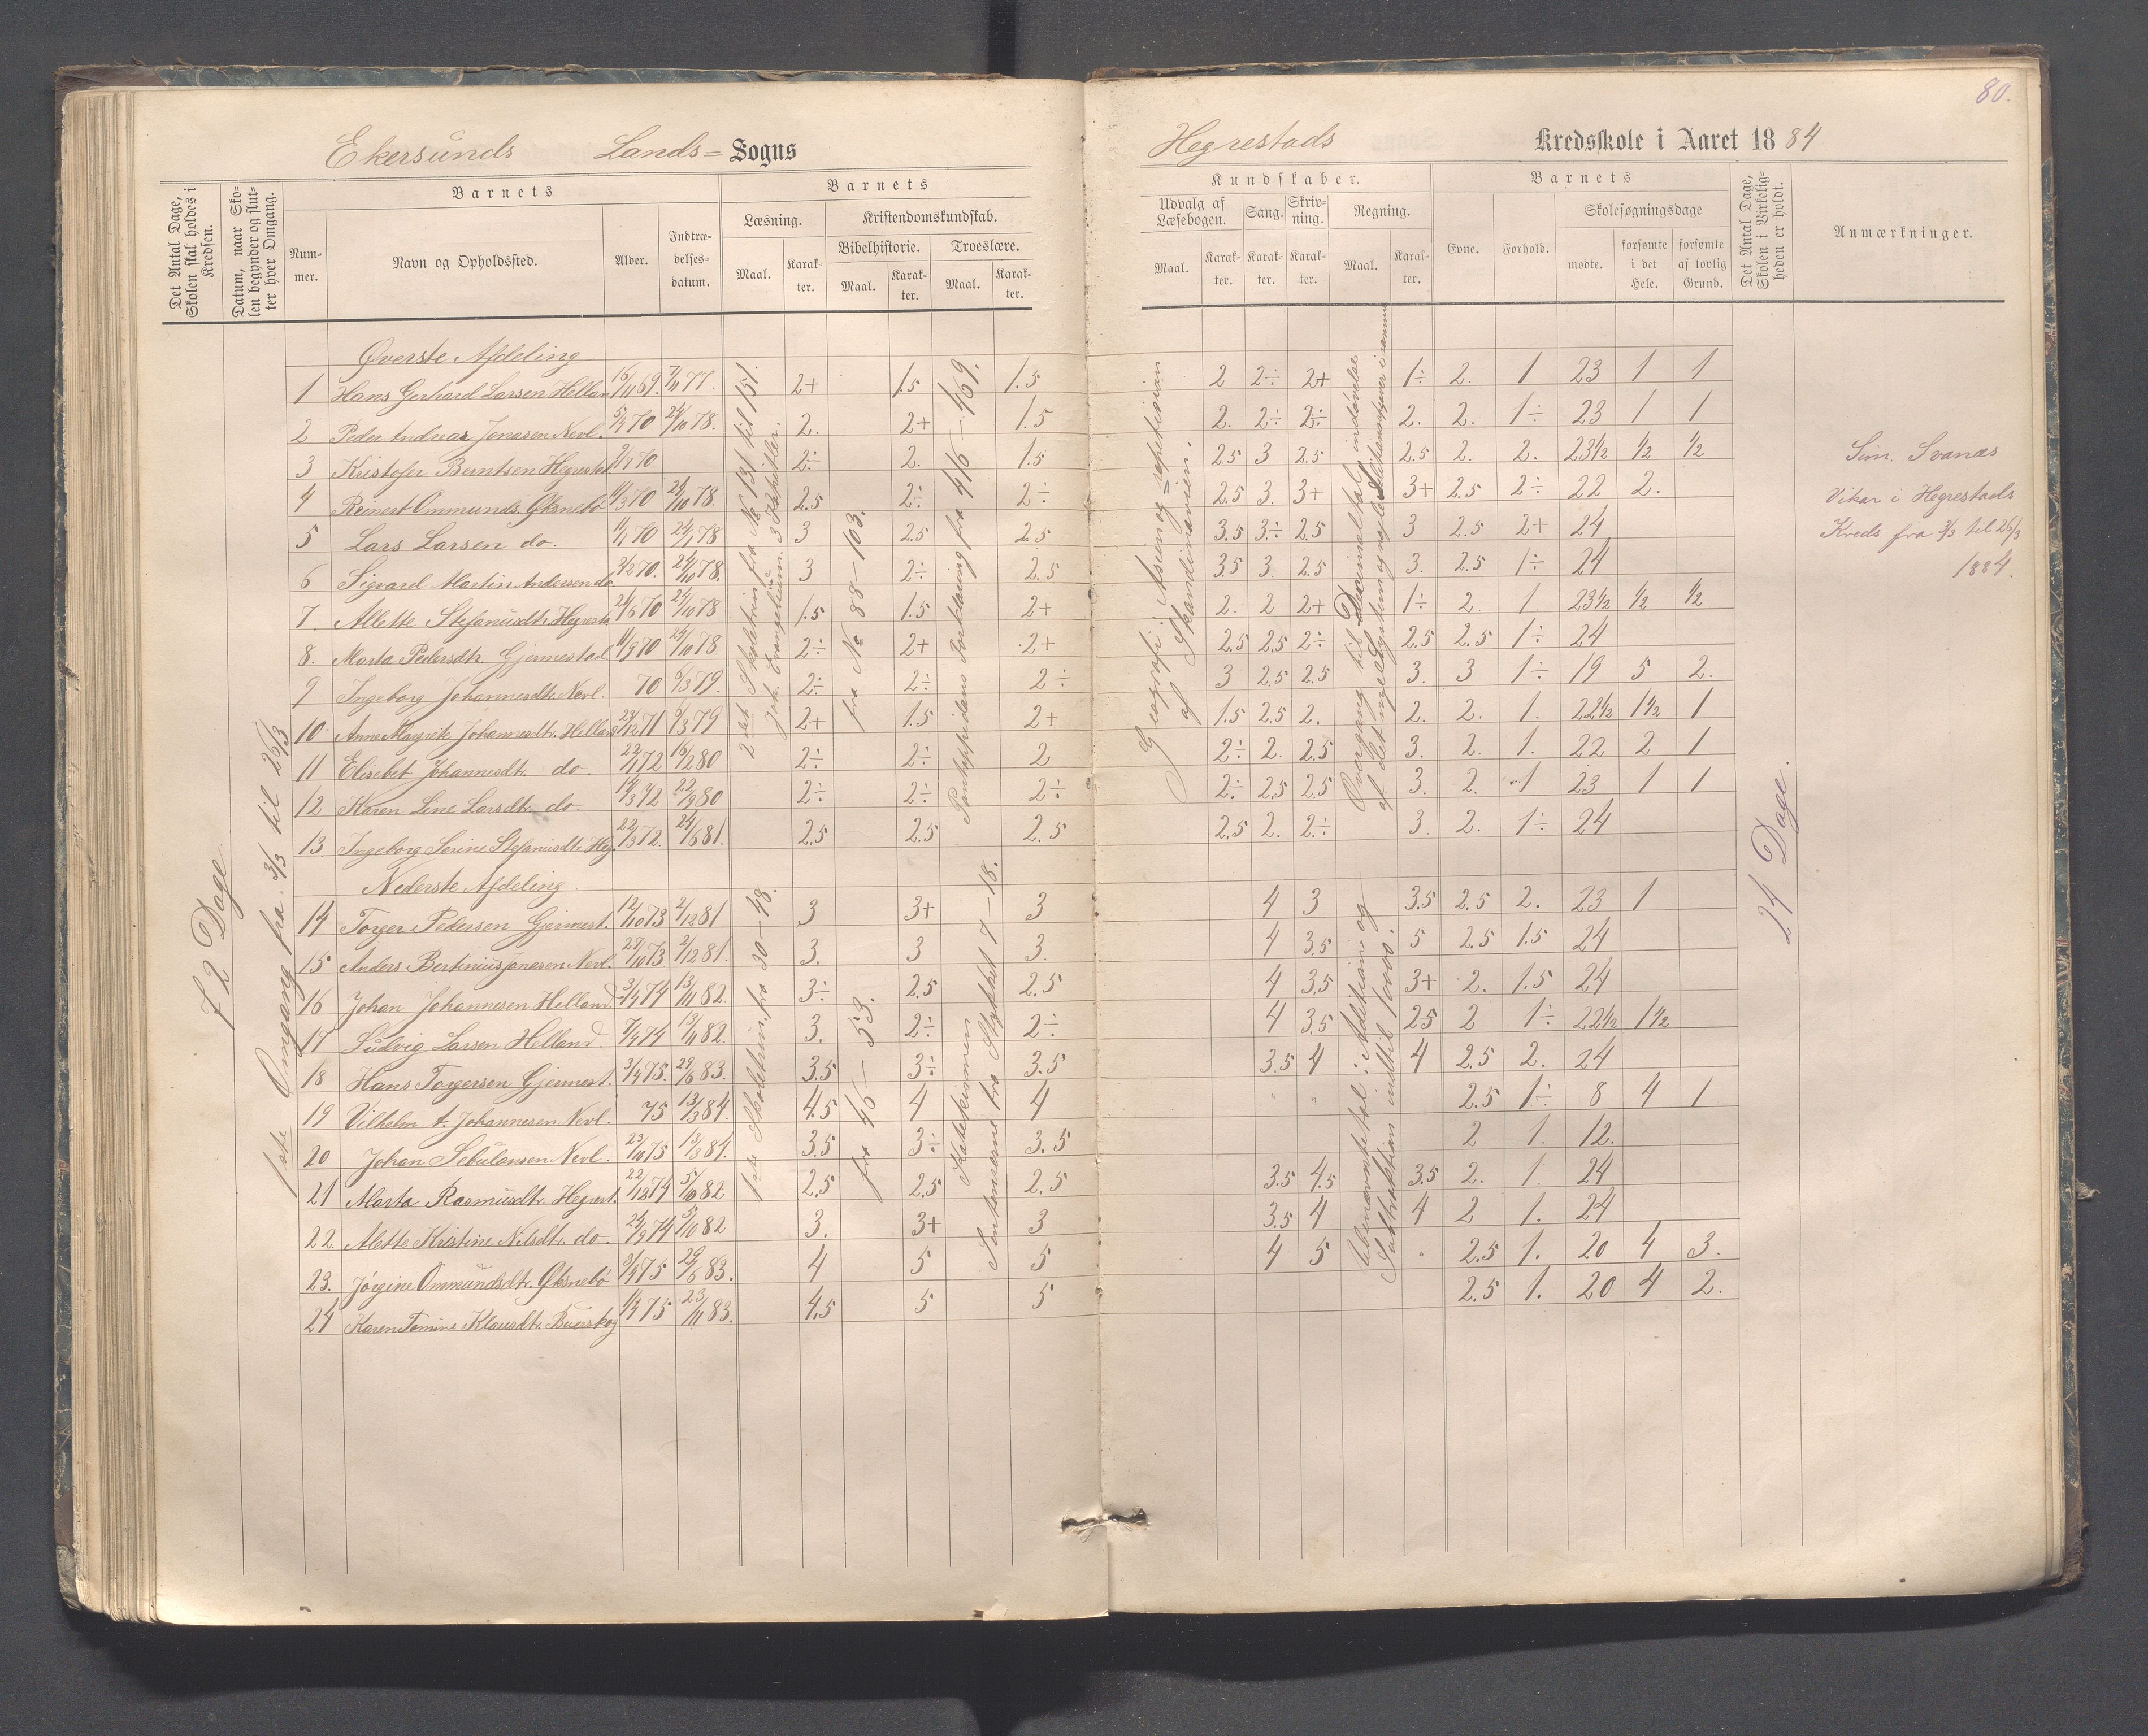 80.
Ekersunds Lands= Sogns
Hegrestads Kredsskole i Aaret 1884
Det Antal Dage, Skolen skal holdes i Kredsen.
Datum, naar Skolen begynder og slutter hver Omgang.
Barnets
Nummer.
Navn og Opholdssted.
Alder.
Indtrædelsesdatum.
Barnets
Læsning.
Maal.
Karakter.
Kristendomskundskab.
Bibelhistorie.
Maal.
Karakter.
Troeslære.
Maal.
Karakter.
Kundskaber.
Udvalg af Læsebogen.
Maal.
Karakter.
Sang.
Karakter.
Skrivning.
Karakter.
Regning.
Maal.
Karakter.
Barnets
Evne.
Forhold.
Skolesøgningsdage
mødte.
forsømte i det Hele.
forsømte af lovlig Grund.
Det Antal Dage, Skolen i Virkeligheden er holdt.
Anmærkninger.
72 Dage
1ste Omgang fra 3/3 til 26/3
Øverste Afdeling
1 Hans Gerhard Larsen Helland 16/11 69. 7/11 77. 2+ 1.5 1.5 2 2÷ 2+ 1÷ 2. 1 23 1 1
2 Peder Andreas Jonasen Nevl. 5/4 70 24/10 78. 2. 2+ 1.5 2. 2÷ 2÷ 2. 2. 1÷ 23 1 1
3 Kristofer Berntsen Hegrestad 2/1 70 2÷ 2. 1.5 2.5 3 2.5 2.5 2. 2. 23½ ½ ½
4 Reinert Ommunds. Øksnebø 11/3 70 24/10 78. 2.5 2÷ 2÷ 2.5 3. 3+ 3+ 2.5 2÷ 22 2.
5 Lars Larsen do. 11/1 70 24/1 78 3 2.5 2.5 3.5 3÷ 2.5 3 2.5 2+ 24
6 Sigvard Martin Andersen do 2/2 70. 24/10 78. 3 2÷ 2.5 3.5 3. 2.5 3. 2.5 1÷ 24
7. Allette Stefanusdtr. Hegresta 21/6 70 24/10 78 1.5 1.5 2+ 2. 2 2+ 1÷ 2. 1. 23½ ½ ½
8. Marta Pedersdtr Gjermestad 11/9 70 24/10 78 2÷ 2+ 2+ 2.5 2.5 2÷ 2.5 2.5 1÷ 24
9 Ingeborg Johannesdtr. Nevl. 70 5/3 79. 2÷ 2÷ 2÷ 3 2.5 2.5 3. 3 1÷ 19 5 2.
10 Anne Margrete Johannesdtr. Helland 23/12 71 5/3 79 2+ 1.5 2+ 1.5 2.5 2. 2. 2. 1. 22½ 1½ 1
11 Elisebet Johannesdtr. do. 22/1 72 16/2 80 2÷ 2÷ 2 2÷ 2. 2.5 3. 2. 1. 22 2 1
12 Karen Line Larsdtr. do. 14/3 72 22/9 80 2÷ 2÷ 2÷ 2÷ 2.5 2.5 3. 2. 1 23 1 1
13 Ingeborg Serine Stefanusdtr. Heg. 22/3 72. 24/5 81. 2.5 2.5 2.5 2.5 2. 2÷ 3. 2. 1÷ 24
Nederste Afdeling.
14 Torger Pedersen Gjermest. 12/10 73 2/12 81 3 3+ 3 4 3 3.5 2.5 2. 23 1
15 Anders Bertinius Jonasen Nevl. 27/10 73 2/12 81. 3. 3 3. 4 3.5 5 2.5 1.5 24
16 Johan Johannesen Helland 3/4 74 13/11 82. 3÷ 2.5 2.5 4 3.5 3+ 2. 1.5 24
17 Ludvig Larsen Helland. 7/4 74 13/11 82. 3. 2÷ 2÷ 4 3.5 2.5 2 1÷ 22½ 1½
18 Hans Torgersen Gjermest. 3/4 75. 29/6 83. 3.5 3÷ 3.5 3.5 4 4 2.5 2. 24
19 Vilhelm A. Johannesen Nevl. 75 13/3 84. 4.5 4 4 " " 2.5 1÷ 8 4 1
20 Johan Sebulonsen Nevl. 23/10 75 13/3 84. 3.5 3÷ 3.5 2 1. 12.
21 Marta Rasmusdtr. Hegrest. 22/12 74 5/10 82 2.5 2.5 2.5 3.5 4.5 3.5 2. 1. 24
22. Alette Kristine Nilsdtr. do. 24/9 74 5/10 82 3. 3+ 3 3.5 4 4 2 1. 24
23. Jørgine Ommundsdtr. Øksnebø 3/4 75 29/6 83. 4 5 5 4 5 " 2.5 1. 20 4 3.
24 Karen Tomine Klausdtr. Buerskog 1/4 75 23/11 83. 4.5 5 5 2.5 1. 20 4 2.
2det Skoletrin fra № 131 til 151.
Joh. Evangelium. 3 Kapitler.
fra № 88–103.
Pontoppidans Forklaring fra 416–469.
Geografi: Læsning = repetision af Skandinavien.
Overgang til Decimaltal, indøvelse af det nye System og regle
1ste Skoletrin, fra 30–48.
fra 46–53.
Katekismen
fra Stykket 7–18.
Ubenævnte tal: Addition og Subtraktion indtil 10000.
24 Dage.
Sim. Svanæs
Vikar i Hegrestads
Kreds fra 3/3 til 26/3
1884.